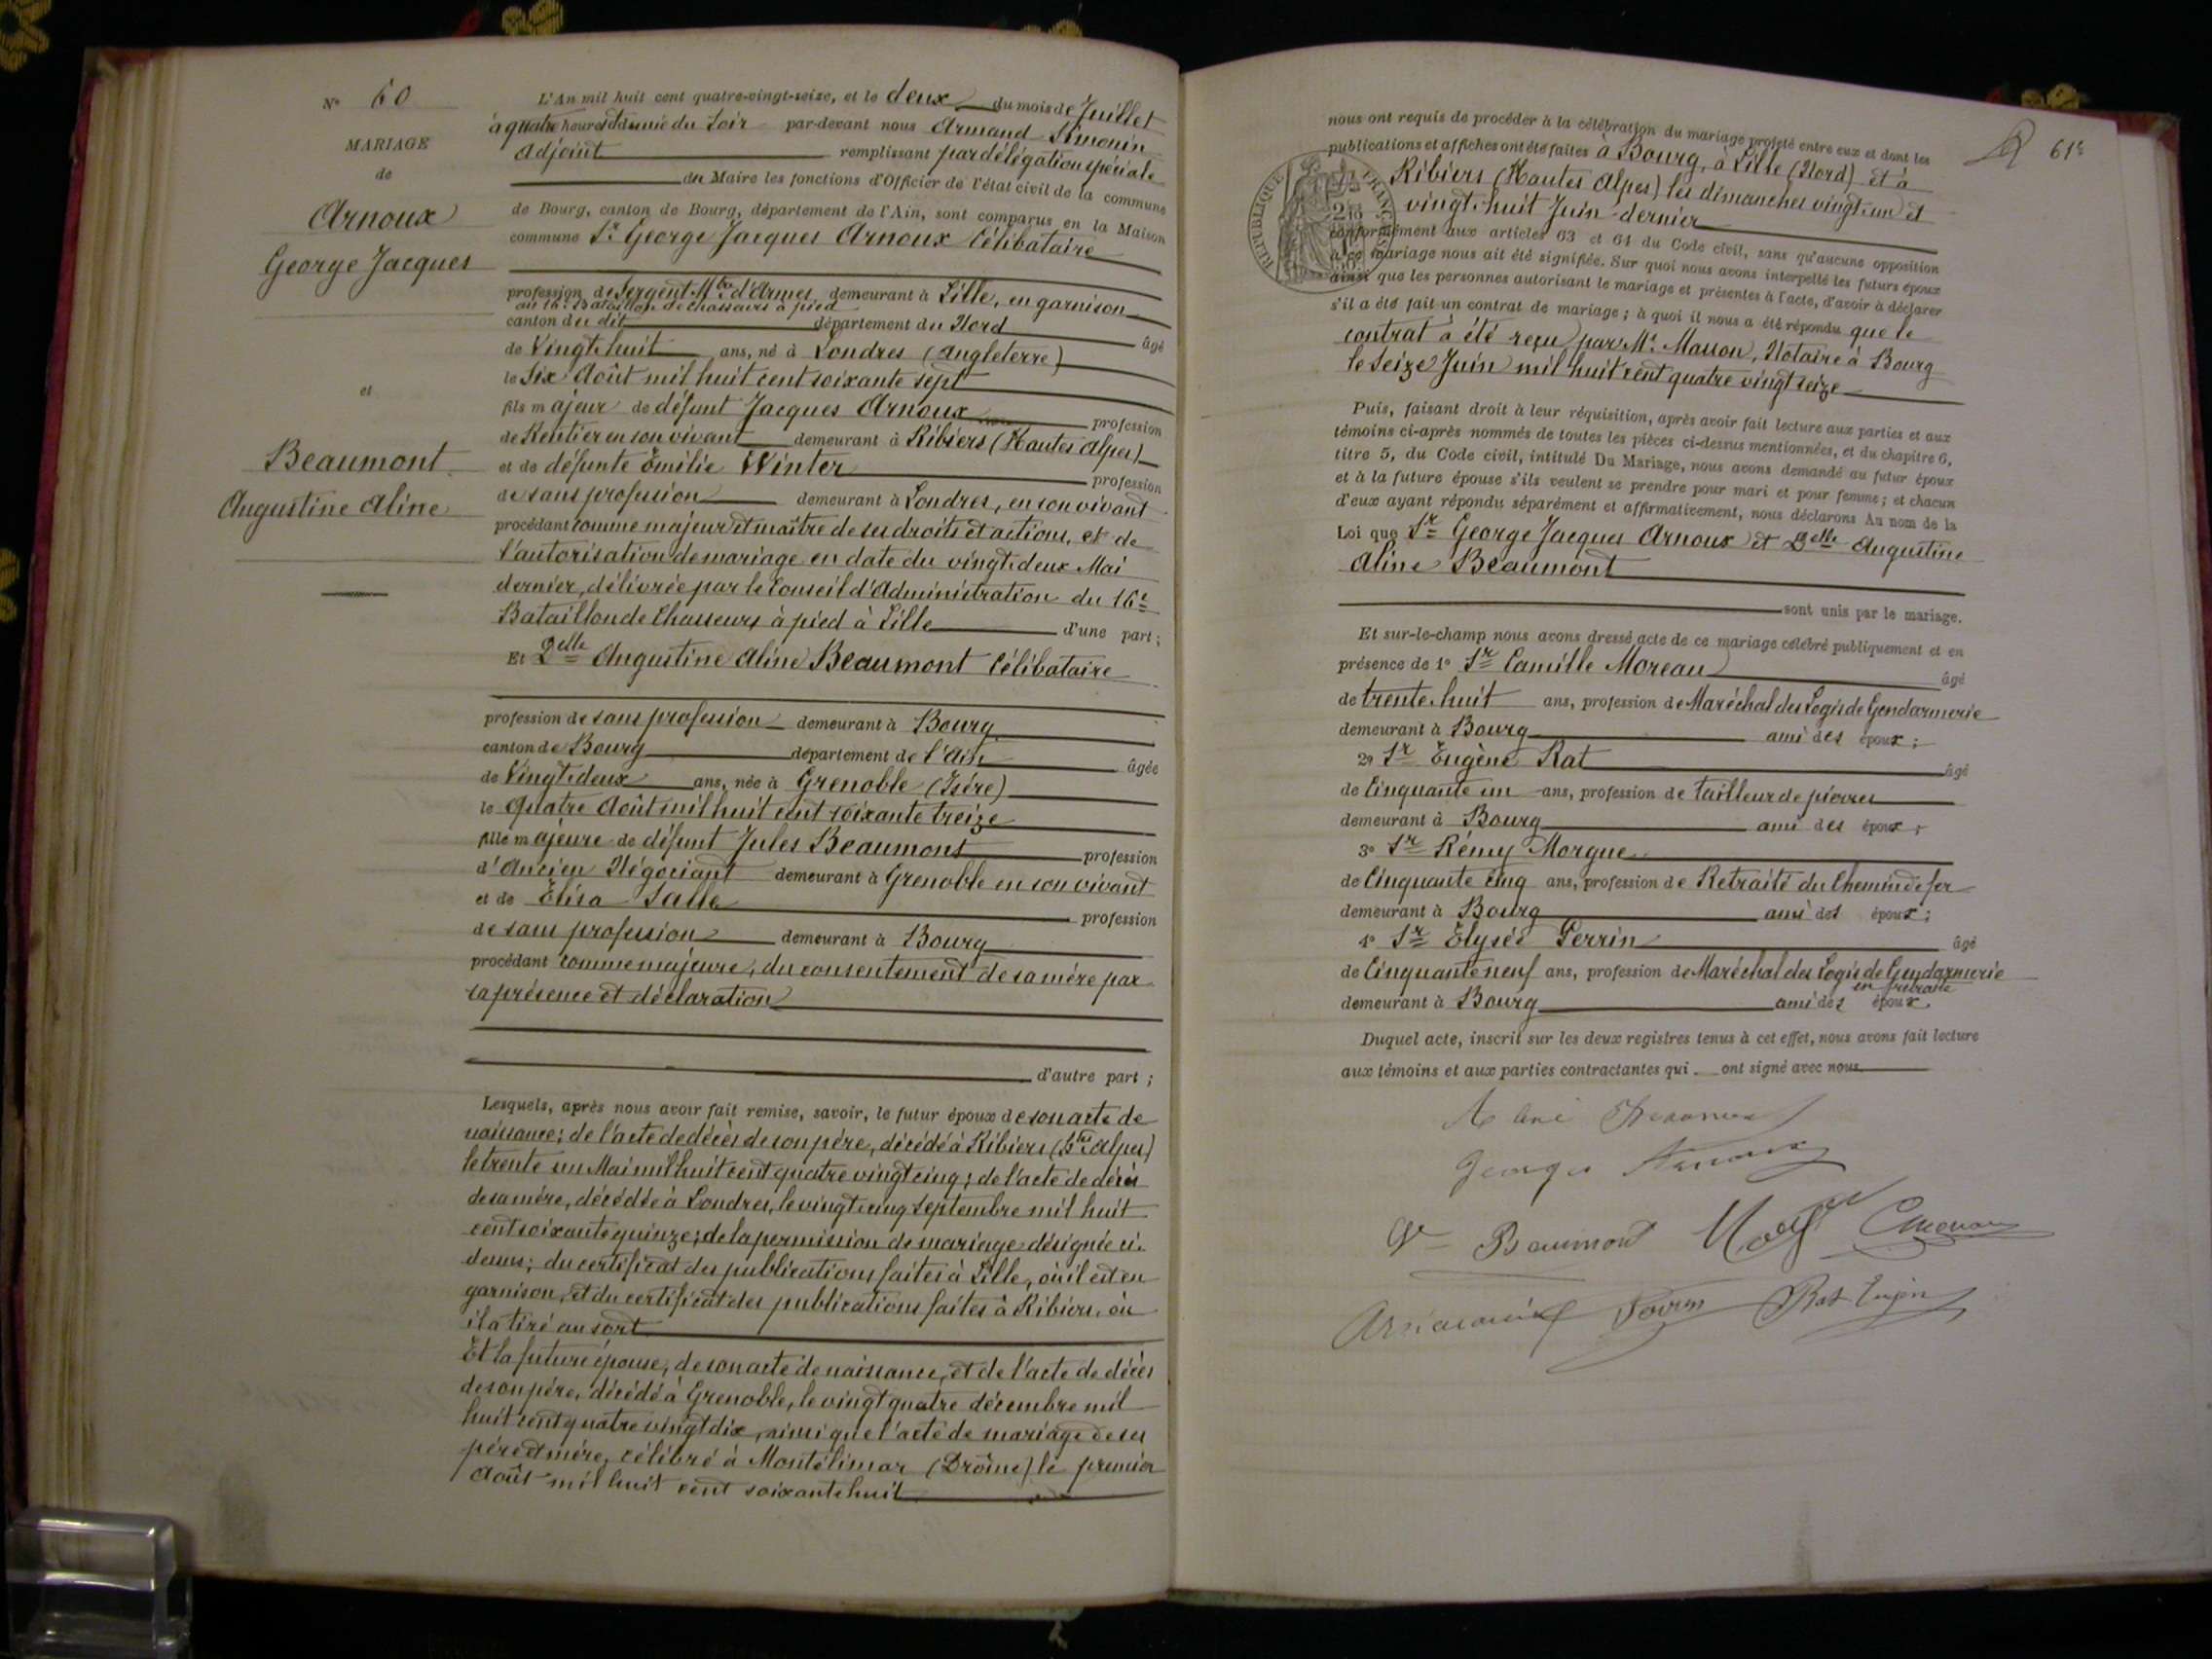 N° 60
MARIAGE
de
Arnoux
George Jacques
et
Beaumont
Augustine Aline
L'An mil huit cent quatre-vingt-seize, et le deux du mois de Juillet
à quatre heures et demie du Soir par-devant nous Armand Simonin
Adjoint remplissant par délégation spéciale
du Maire les fonctions d'Officier de l'état civil de la commune
de Bourg, canton de Bourg, département de l'Ain, sont comparus en la Maison
commune Sr George Jacques Arnoux Célibataire
profession de Sergent Mtre d'Armes demeurant à Lille, en garnison
au 16e Bataillon de chasseurs à pied
canton du dit département du Nord âgé
de Vingt-huit ans, né à Londres (Angleterre)
le Six Août mil huit cent soixante sept
fils majeur de défunt Jacques Arnoux profession
de Rentier en son vivant demeurant à Ribiers (Hautes Alpes)
et de défunte Emilie Winter profession
de sans profession demeurant à Londres, en son vivant
procédant comme majeur et maître de ses droits et actions, et de
l'autorisation de mariage en date du vingt-deux Mai
dernier, délivrée par le Conseil d'Administration du 16e
Bataillon de Chasseurs à pied à Lille d'une part;
Et Delle Augustine Aline Beaumont Célibataire
profession de sans profession demeurant à Bourg
canton de Bourg département de l'Ain âgée
de Vingt-deux ans, née à Grenoble (Isère)
le quatre Août mil huit cent soixante treize
fille majeure de défunt Jules Beaumont profession
d'Ancien Négociant demeurant à Grenoble en son vivant
et de Elisa Salle profession
de sans profession demeurant à Bourg
procédant comme majeure, du consentement de sa mère par
sa présence et déclaration
d'autre part;
Lesquels, après nous avoir fait remise, savoir, le futur époux de son acte de
naissance; de l'acte de décès de son père, décédé à Ribiers (Htes Alpes)
le trente un Mai mil huit cent quatre vingt cinq; de l'acte de décès
de sa mère, décédée à Londres, le vingt-cinq Septembre mil huit
cent soixante quinze; de la permission de mariage désignée ci-
dessus; du certificat des publications faites à Lille, où il est en
garnison, et du certificat des publications faites à Ribiers, où
il a tiré au sort
Et la future épouse, de son acte de naissance, et de l'acte de décès
de son père, décédé à Grenoble, le vingt quatre décembre mil
huit cent quatre vingt dix, ainsi que l'acte de mariage de ses
père et mère, célébré à Montélimar (Drôme) le premier
Août mil huit cent soixante huit
61e
nous ont requis de procéder à la célébration du mariage projeté entre eux et dont les
publications et affiches ont été faites à Bourg, à Lille (Nord) et à
Ribiers (Hautes Alpes) les dimanches vingt-un et
vingt-huit Juin dernier
RÉPUBLIQUE FRANÇAISE
conformément aux articles 63 et 64 du Code civil, sans qu'aucune opposition
à ce mariage nous ait été signifiée. Sur quoi nous avons interpellé les futurs époux
ainsi que les personnes autorisant le mariage et présentes à l'acte, d'avoir à déclarer
s'il a été fait un contrat de mariage; à quoi il nous a été répondu que le
contrat a été reçu par Me Masson, Notaire à Bourg
le Seize Juin mil huit cent quatre vingt seize
Puis, faisant droit à leur réquisition, après avoir fait lecture aux parties et aux
témoins ci-après nommés de toutes les pièces ci-dessus mentionnées, et du chapitre 6,
titre 5, du Code civil, intitulé Du Mariage, nous avons demandé au futur époux
et à la future épouse s'ils veulent se prendre pour mari et pour femme; et chacun
d'eux ayant répondu séparément et affirmativement, nous déclarons Au nom de la
Loi que Sr George Jacques Arnoux et Delle Augustine
Aline Beaumont
sont unis par le mariage.
Et sur-le-champ nous avons dressé acte de ce mariage célébré publiquement et en
présence de 1° Sr Camille Moreau âgé
de trente-huit ans, profession de Maréchal des Logis de Gendarmerie
demeurant à Bourg ami des époux;
2° Sr Eugène Rat âgé
de Cinquante un ans, profession de tailleur de pierres
demeurant à Bourg ami des époux;
3° Sr Rémy Morgue
de Cinquante cinq ans, profession de Retraité du Chemin de fer
demeurant à Bourg ami des époux;
4° Sr Elysée Perrin âgé
de Cinquante neuf ans, profession de Maréchal des Logis de Gendarmerie
en retraite
demeurant à Bourg ami des époux.
Duquel acte, inscrit sur les deux registres tenus à cet effet, nous avons fait lecture
aux témoins et aux parties contractantes qui ont signé avec nous.
Georges Arnoux
Ve Beaumont
Rat Eugène